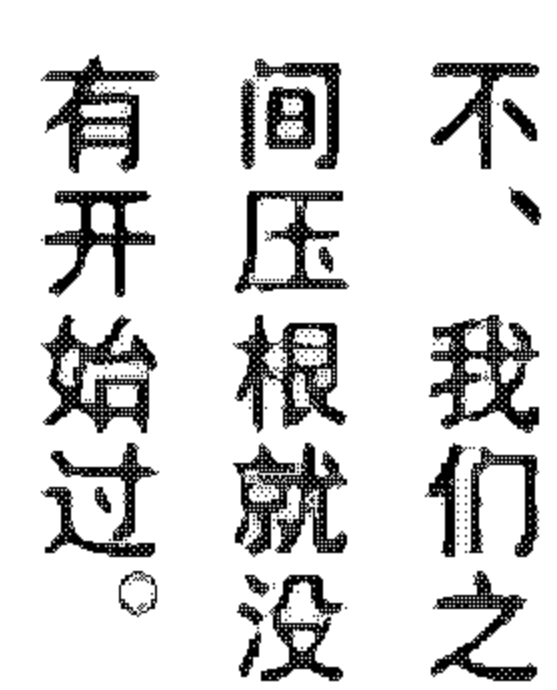 不、我们之
间压根就没
有开始过。